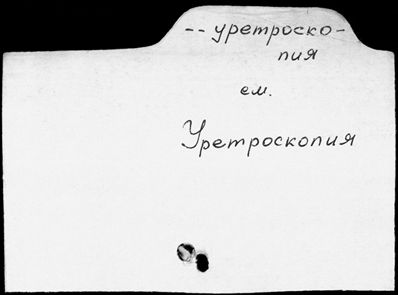 -- уретроско-
пия
см.
Уретроскопия